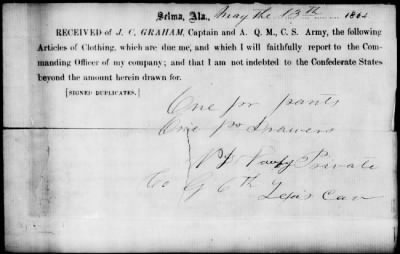 Selma, Ala., May the 13th 1864
RECEIVED of J. C. GRAHAM, Captain and A. Q. M., C. S. Army, the following
Articles of Clothing, which are due me, and which I will faithfully report to the Com-
manding Officer of my company; and that I am not indebted to the Confederate States
beyond the amount herein drawn for.
[SIGNED DUPLICATES.]
One pr pants
One pr Drawers
Private
Co G 6th Texas Cav